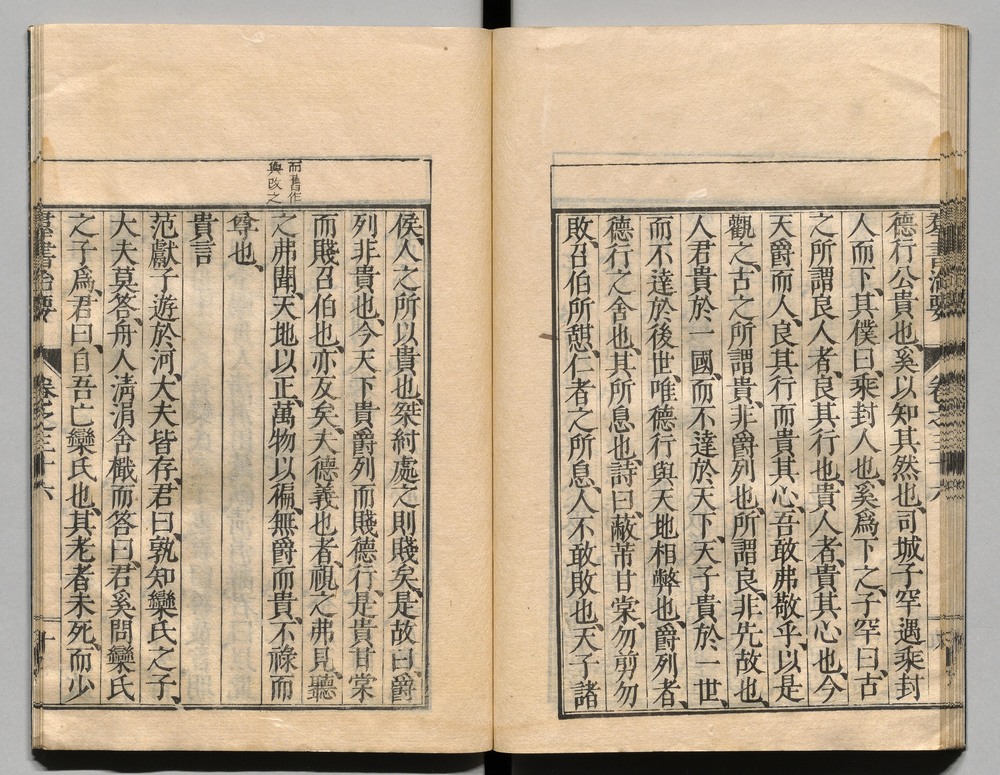 群書治要 卷之三十六
德行公貴也奚以知其然也、司城子罕遇乘封
人而下、其僕曰、乘封人也、奚爲下之、子罕曰、古
之所謂良人者、良其行也、貴人者、貴其心也、今
天爵而人、良其行而貴其心、吾敢弗敬乎、以是
觀之、古之所謂貴、非爵列也、所謂良、非先故也、
人君貴於一國、而不達於天下、天子貴於一世、
而不達於後世、唯德行與天地相弊也、爵列者、
德行之舍也、其所息也、詩曰、蔽芾甘棠、勿剪勿
敗、召伯所憩、仁者之所息、人不敢敗也、天子諸
侯、人之所以貴也、桀紂處之則賤矣、是故曰、爵
列非貴也、今天下貴爵列而賤德行、是貴甘棠
而賤召伯也、亦反矣、夫德義也者、視之弗見、聽
之弗聞、天地以正、萬物以徧、無爵而貴、不祿而
尊也、
而舊作
與改之
貴言
范獻子遊於河、大夫皆存、君曰、孰知欒氏之子、
大夫莫答、舟人淸涓舍檝而答曰、君奚問欒氏
之子爲、君曰、自吾亡欒氏也、其老者未死、而少
群書治要 卷之三十六 十